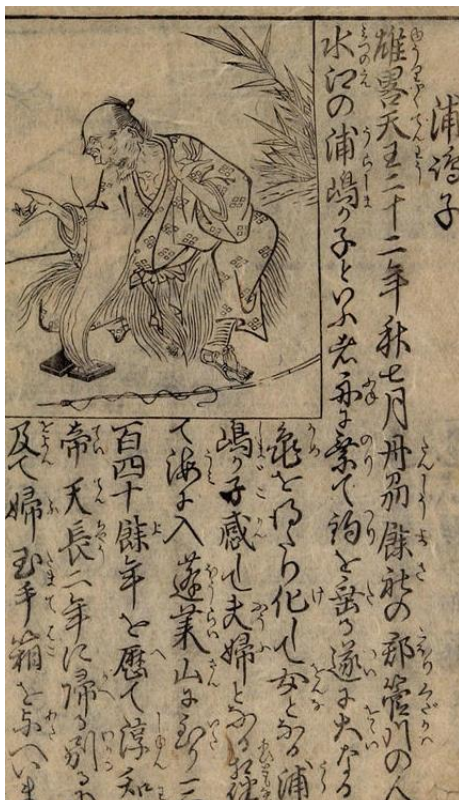 浦嶋子
雄畧天王二十二年秋七月丹刕餘社の郡管川の人
水江の浦嶋か子といふ者舟に乗て釣を垂る遂に大なる
亀を得たり化して女となる浦
嶋か子感して夫婦となる相
て海に入蓬莱山に到り三
百四十餘年を歴て淳和
帝天長二年に帰る別るゝ
及て婦玉手箱を与へい